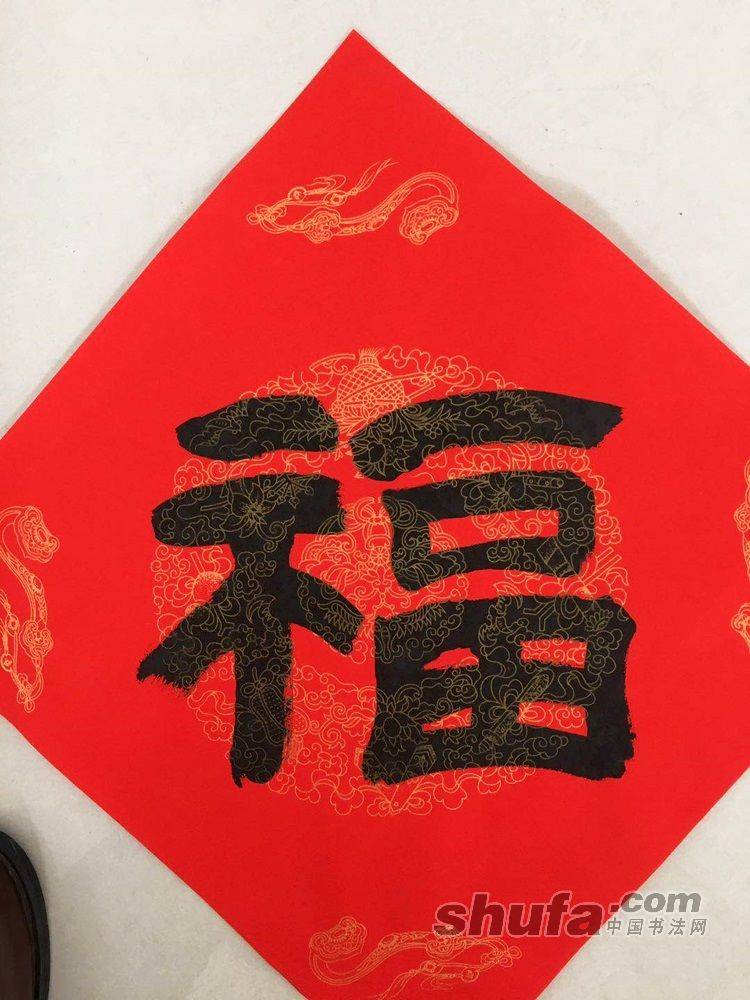 福
shufa.com
中国书法网